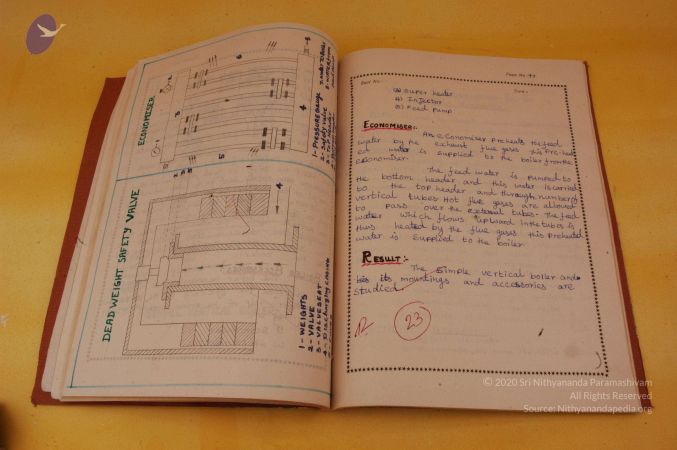 ECONOMISER
1 - PRESSURE GAUGE
2 - Safety valve
DEAD WEIGHT SAFETY VALVE
1 - WEIGHTS
2 - VALVE
3 - VALVE SEAT
4 - Discharging casing
Page No
Expt No:
Date:
Super heater
4) Injector
5) Feed pump
ECONOMISER:-
An economiser preheats the feed
water by the exhaust flue gases this Pre-heat
ed water is supplied to the boiler from the
economiser
The feed water is pumped to
the bottom header and this water is carried
to the top header and through number of
vertical tubes Hot flue gases are allowed
to pass over the external tubes. The feed
water which flows upward in the tubes is
thus heated by the flue gases this preheated
water is supplied to the boiler
RESULT:-
The simple vertical boiler and
its mountings and accessories are
studied.
23
© 2020 Sri Nithyananda Paramashivam
All Rights Reserved
Source: Nithyanandapedia.org